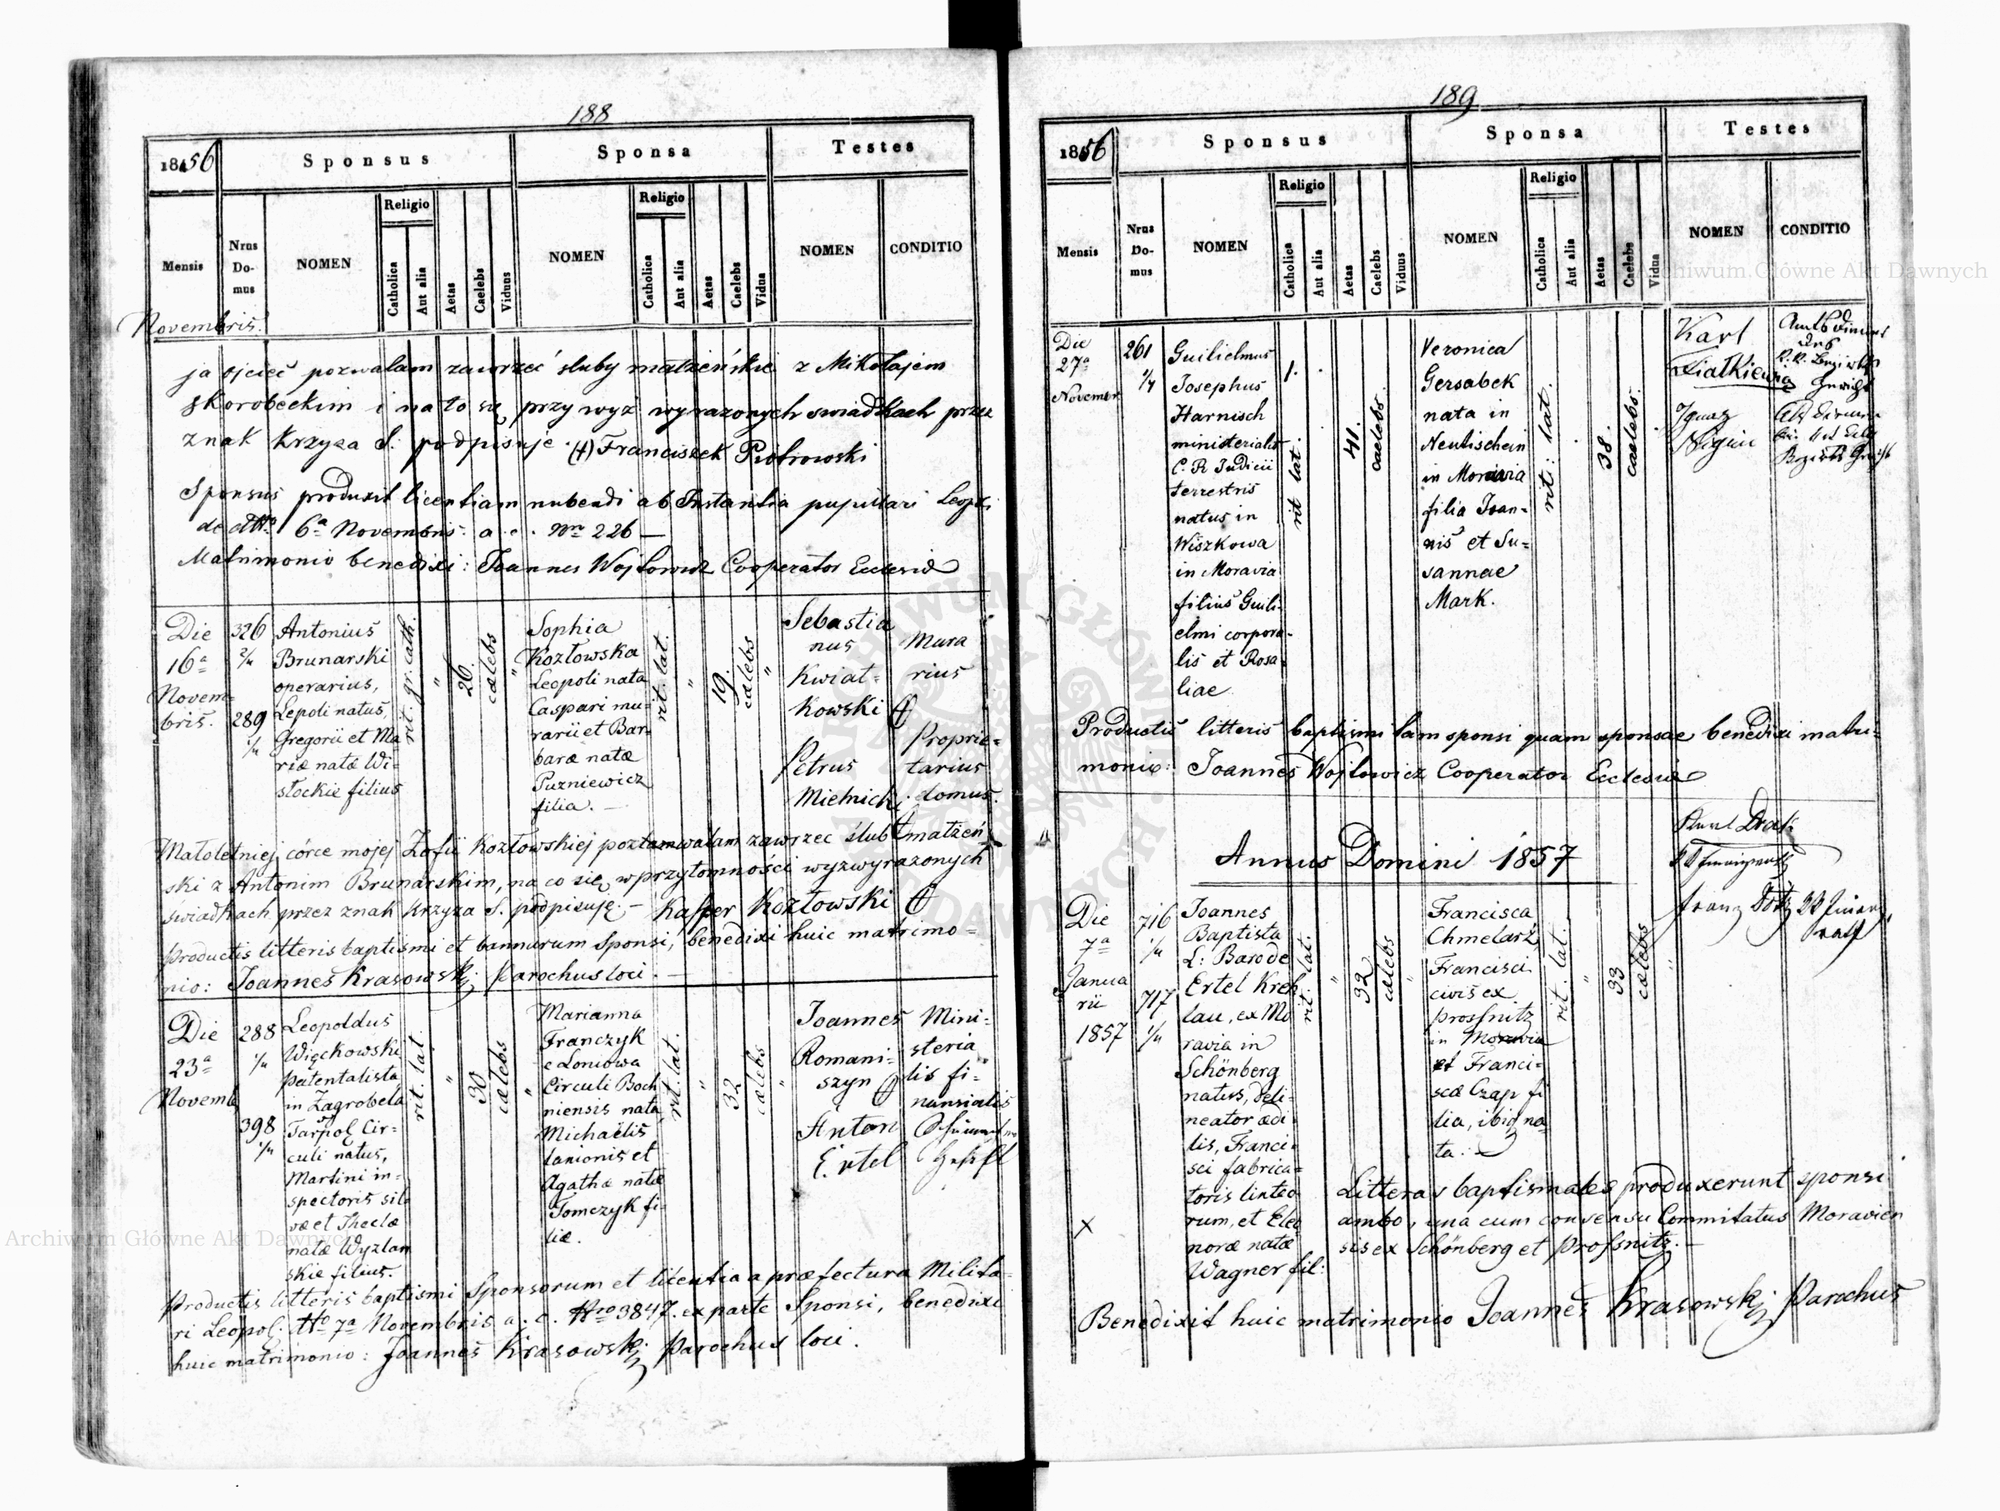 188
1856
Sponsus
Sponsa
Testes
Mensis
Nrus Domus
NOMEN
Religio
Catholica
Aut alia
Aetas
Caelebs
Viduus
NOMEN
Religio
Catholica
Aut alia
Aetas
Caelebs
Vidua
NOMEN
CONDITIO
Novembris.
ja ojciec pozwalam zawrzeć śluby małżeńskie z Mikołajem
Skorobeckim i na to się przy wyż wyrazonych swiadkach przez
znak Krzyza S. podpisuje (+) Franciszek Piotrowski
Sponsus produxit licentiam nubendi ab Instantia pupillari Leopli
de dtto 6a Novembris a. c. Nro 226 —
Matrimonio benedixi: Joannes Wojtowicz Cooperator Ecclesiæ
Die
16a
Novem-
bris.
326
2/4
289
1/4
Antonius
Brunarski
operarius,
Lepoli natus,
Gregorii et Ma
riæ natæ Wi-
słockie filius
rit. gr. cath.
"
26.
cælebs
"
Sophia
Kozłowska
Leopoli nata
Caspari mu-
rarii et Bar-
baræ natæ
Puzniewicz
filia. —
rit. lat.
"
19.
cælebs
"
Sebastia
nus
Kwiat-
kowski
Mura
rius
Petrus
Mielnicki
Proprie-
tarius
domus.
Małoletniej córce mojej Zofii Kozłowskiej pozwalam zawrzec ślub małżeń
ski z Antonim Brunarskim, na co się w przytomności wyzwyrazonych
świadkach przez znak Krzyza S. podpisuję. — Kasper Kozłowski
Productis litteris baptismi et bannorum Sponsi, benedixi huic matrimo-
nio: Joannes Krasowski Parochus loci. —
Die
23a
Novemb
288
1/4
398
1/4
Leopoldus
Więckowski
patentalista
in Zagrobela
Tarpol Cir-
culi natus,
Martini in-
spectoris sil-
væ et Theclæ
natæ Wyzlan
skie filius.
rit. lat.
"
30
cælebs
"
Marianna
Franczyk
e Loniowa
Circuli Boch
niensis nata
Michaelis
lanionis et
Agathæ natæ
Tomczyk fi-
liæ.
rit. lat.
"
32
cælebs
"
Joannes
Romani-
szyn
Mini-
steria
lis fi-
nansialis
Anton
Ertel
Productis litteris baptismi Sponsorum et licentia a præfectura Milita-
ri Leopol: dtto 7a Novembris a. c. Nro 3847. ex parte Sponsi, benedixi
huic matrimonio: Joannes Krasowski Parochus loci.
189
1856
Sponsus
Sponsa
Testes
Mensis
Nrus Domus
NOMEN
Religio
Catholica
Aut alia
Aetas
Caelebs
Viduus
NOMEN
Religio
Catholica
Aut alia
Aetas
Caelebs
Vidua
NOMEN
CONDITIO
Die
27a
Novembr
261
1/4
Guilielmus
Josephus
Harnisch
ministerialis
C. R. Judicii
terrestris
natus in
Wiszkowa
in Moravia
filius Guili-
elmi corpora-
lis et Rosa-
liae
rit lat.
41.
caelebs
Veronica
Gersabek
nata in
Neutischein
in Moravia
filia Joan-
nis et Su-
sannae
Mark.
rit: lat.
38.
caelebs.
Karl
Ignaz
Productis litteris baptismi tam sponsi quam sponsae benedixi matri-
monio: Joannes Wojtowicz Cooperator Ecclesiæ
Annus Domini 1857
Die
7a
Janua
rii
1857
716
1/4
717
1/4
Joannes
Baptista
L: Baro de
Ertel Kreh
lau, ex Mo
ravia in
Schönberg
natus, deli-
neator ædi-
lis, Franci-
sci fabrica-
toris linteo
rum, et Eleo
noræ natæ
Wagner fil:
rit. lat.
"
32
cælebs
"
Francisca
Chmelarz
Francisci
civis ex
Prossnitz
in Moravia
et Franci-
scæ Czap fi
lia, ibiq na-
ta.
rit. lat.
"
33
cælebs
"
Litteras baptismales produxerunt sponsi
ambo, una cum consensu Commitatus Moravien
sis ex Schönberg et Prossnitz. —
X
Benedixit huic matrimonio Joannes Krasowski Parochus
Archiwum Główne Akt Dawnych
Archiwum Główne Akt Dawnych
ARCHIWUM GŁÓWNE AKT DAWNYCH